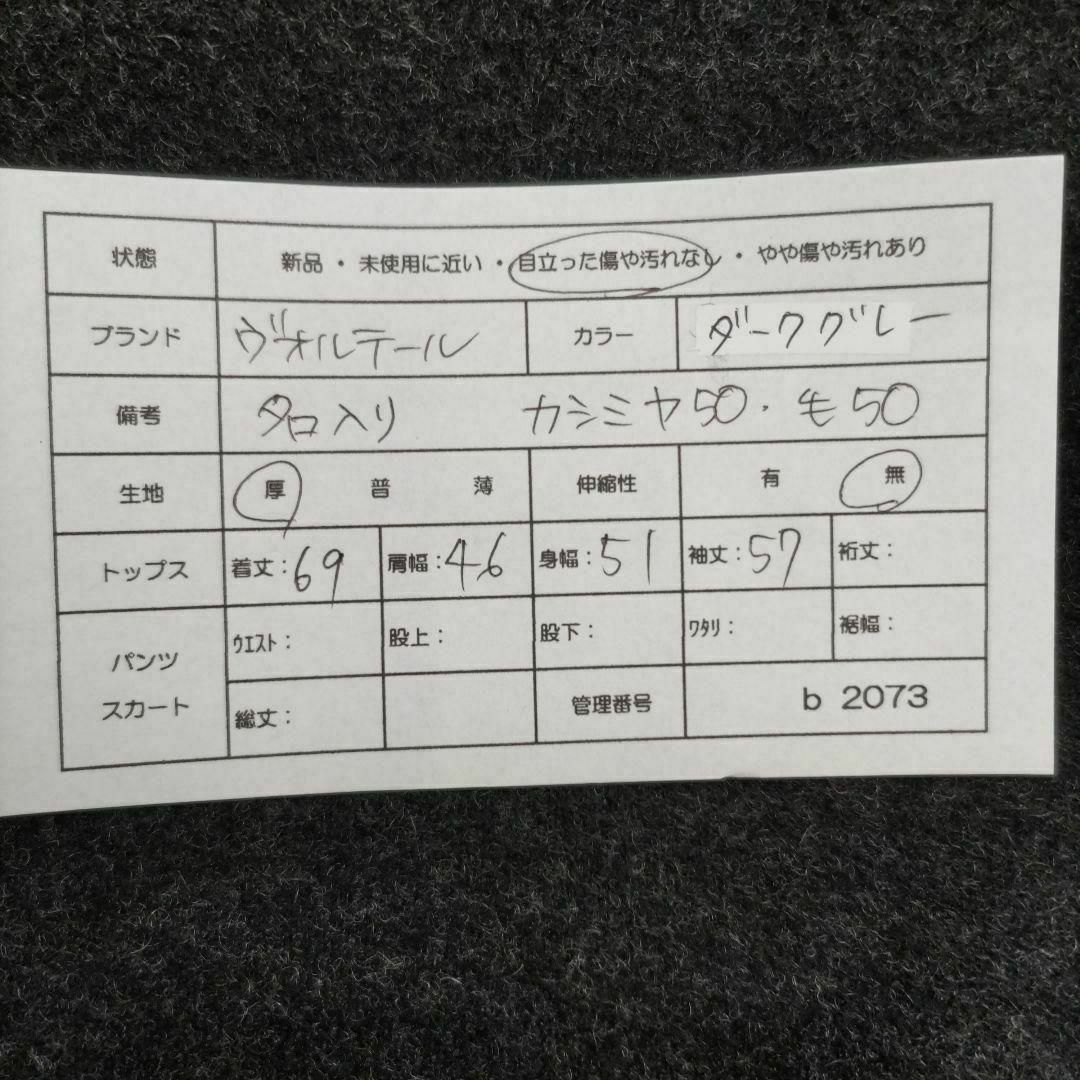 状態 新品・未使用に近い・目立った傷や汚れなし・やや傷や汚れあり
ブランド ヴォルテール カラー ダークグレー
備考 タロ入り カシミヤ50・毛50
生地 厚 普 薄 伸縮性 有 無
トップス 着丈:69 肩幅:46 身幅:51 袖丈:57 裄丈:
パンツ スカート ウエスト: 股上: 股下: ワタリ: 裾幅:
総丈: 管理番号 b 2073